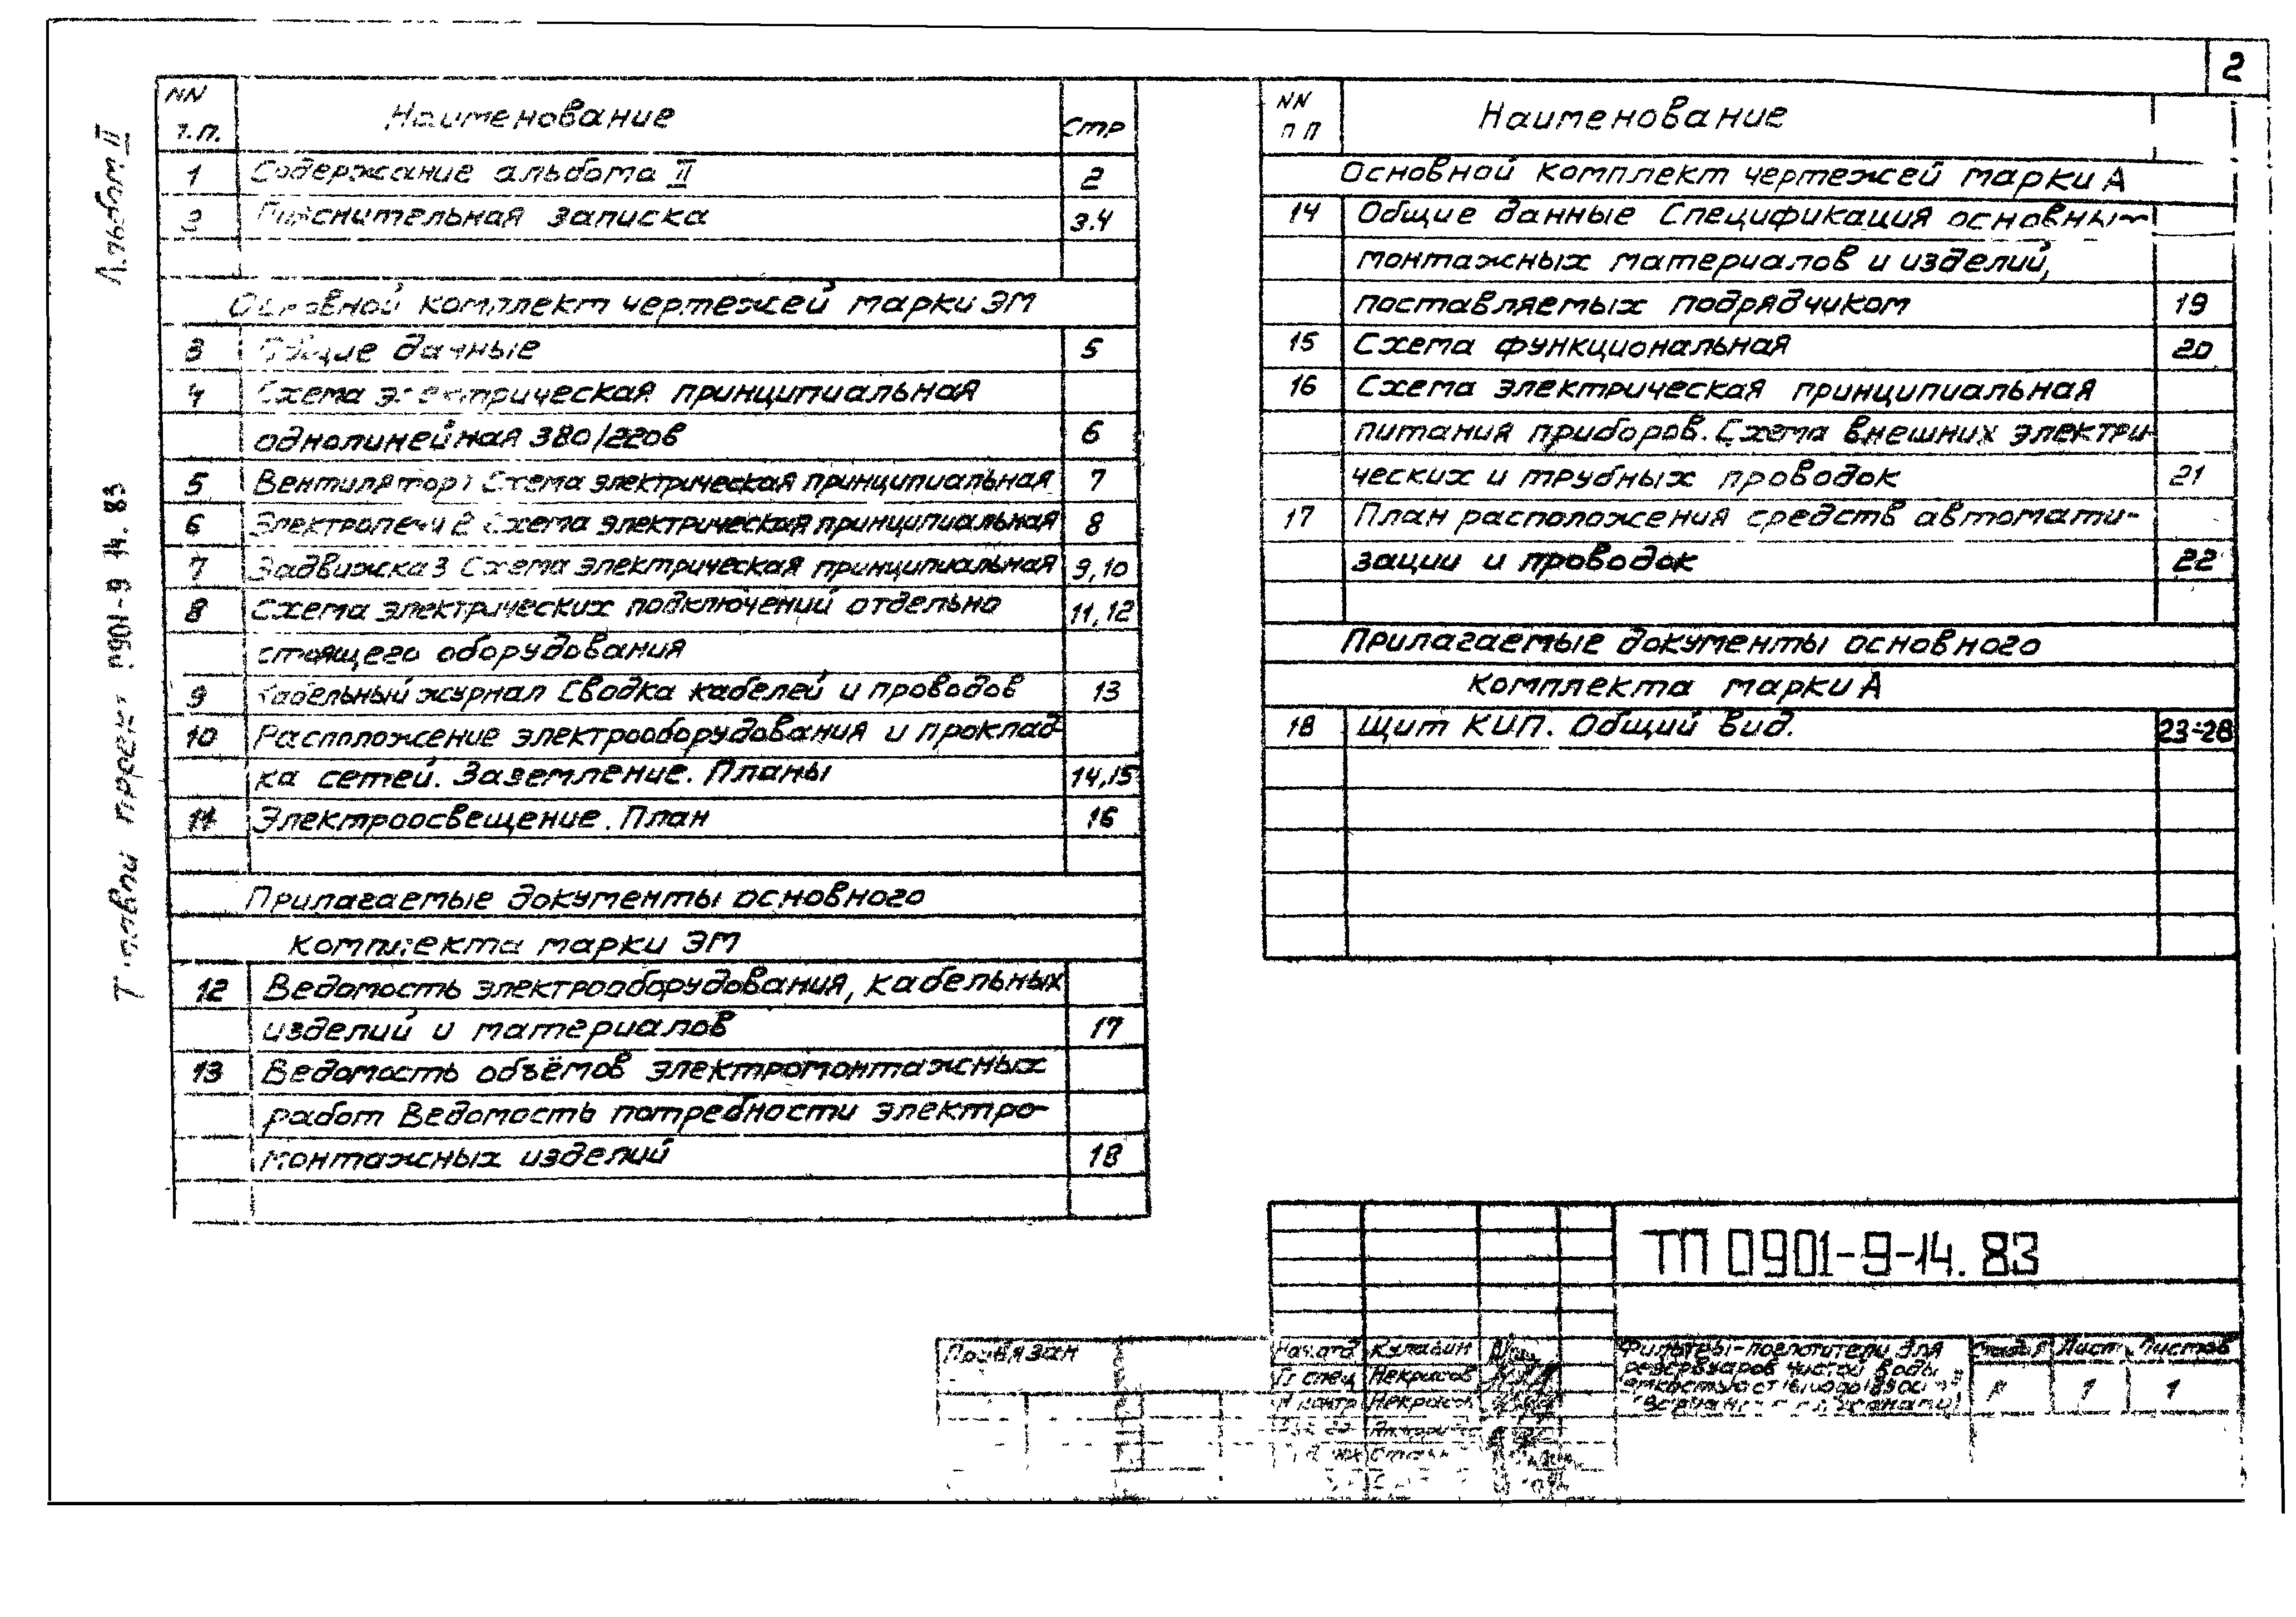 2
Альбом II
Типовой проект 0901-9-14.83
NN п.п. Наименование Стр
1 Содержание альбома II 2
2 Пояснительная записка 3.4
Основной комплект чертежей марки ЭМ
3 Общие данные 5
4 Схема электрическая принципиальная
однолинейная 380/220в 6
5 Вентилятор 1 Схема электрическая принципиальная 7
6 Электропечи 2 Схема электрическая принципиальная 8
7 Задвижка 3 Схема электрическая принципиальная 9,10
8 Схема электрических подключений отдельно 11,12
стоящего оборудования
9 Кабельный журнал Сводка кабелей и проводов 13
10 Расположение электрооборудования и проклад-
ка сетей. Заземление. Планы 14,15
11 Электроосвещение. План 16
Прилагаемые документы основного
комплекта марки ЭМ
12 Ведомость электрооборудования, кабельных
изделий и материалов 17
13 Ведомость объёмов электромонтажных
работ Ведомость потребности электро-
монтажных изделий 18
NN п п Наименование
Основной комплект чертежей марки А
14 Общие данные Спецификация основных
монтажных материалов и изделий,
поставляемых подрядчиком 19
15 Схема функциональная 20
16 Схема электрическая принципиальная
питания приборов. Схема внешних электри-
ческих и трубных проводок 21
17 План расположения средств автомати-
зации и проводок 22
Прилагаемые документы основного
комплекта марки А
18 Щит КИП. Общий вид. 23÷28
ТП 0901-9-14.83
Привязан
Нач.отд Кулагин
Гл спец Некрасов
Н контр Некрасов
Фильтры-поглотители для
резервуаров чистой воды
Стадия Лист Листов
Р 1 1